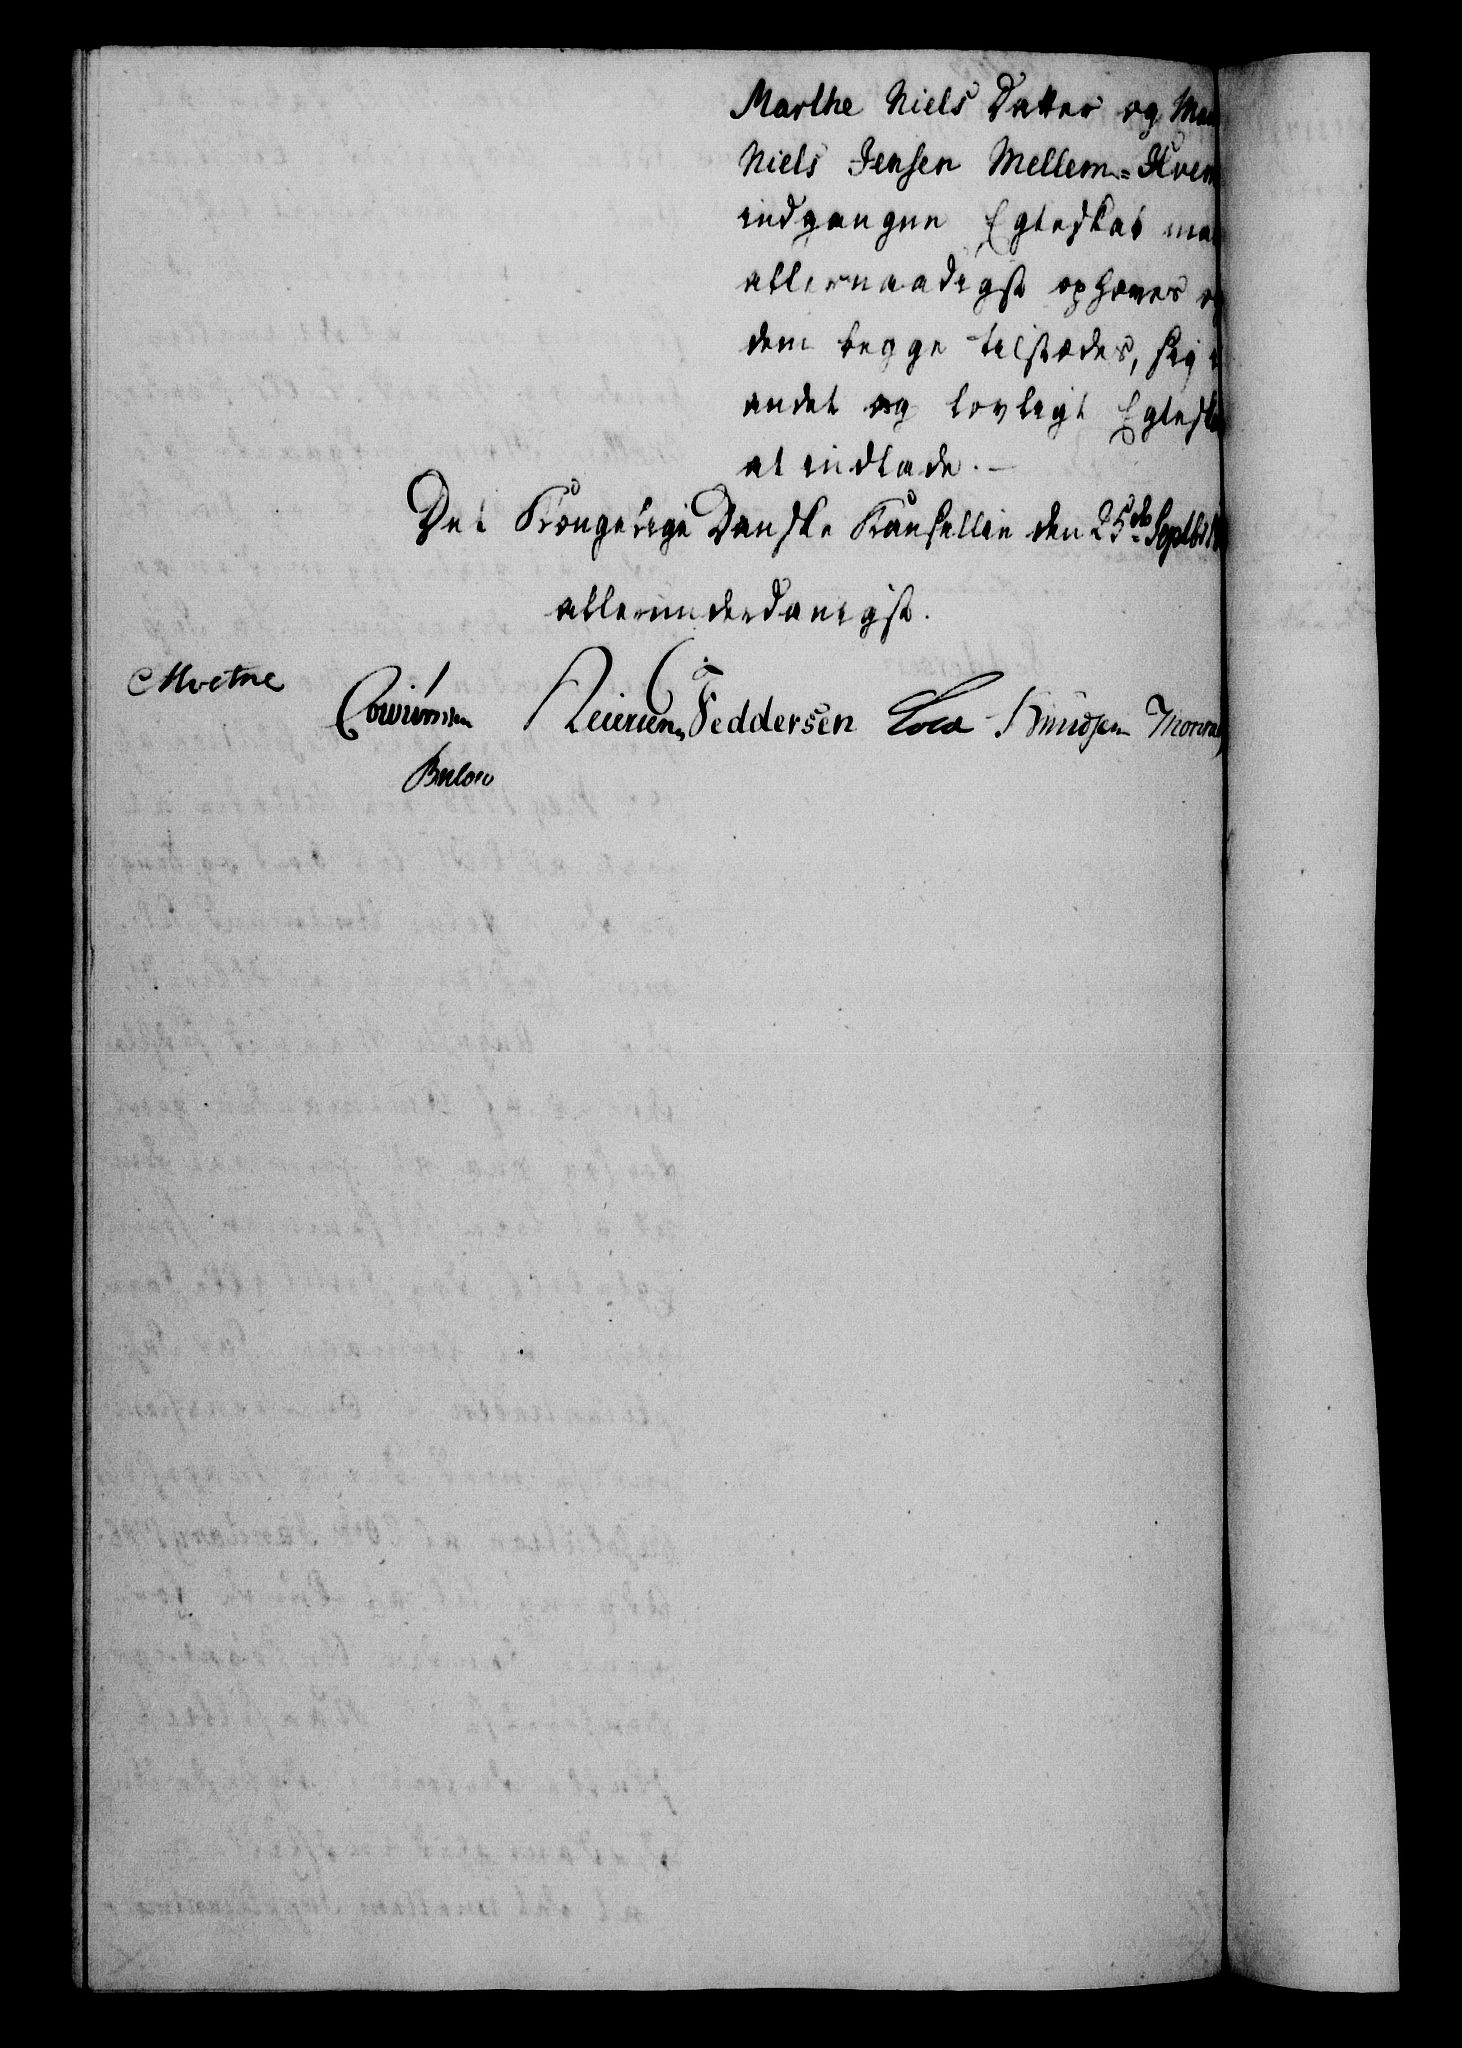 Marthe Niels Datter og
Niels Jensen Mellem-
indgangne Egteskab maa
allernaadigst ophæves og
dem begge tilstædes, sig i
andet og lovligt Egteskab
at indlade.
Det Kongelige Danske Kancellie den 25de Septbr
allerunderdanigst.
Moltke
Cold Feddersen Knudsen
Bülow